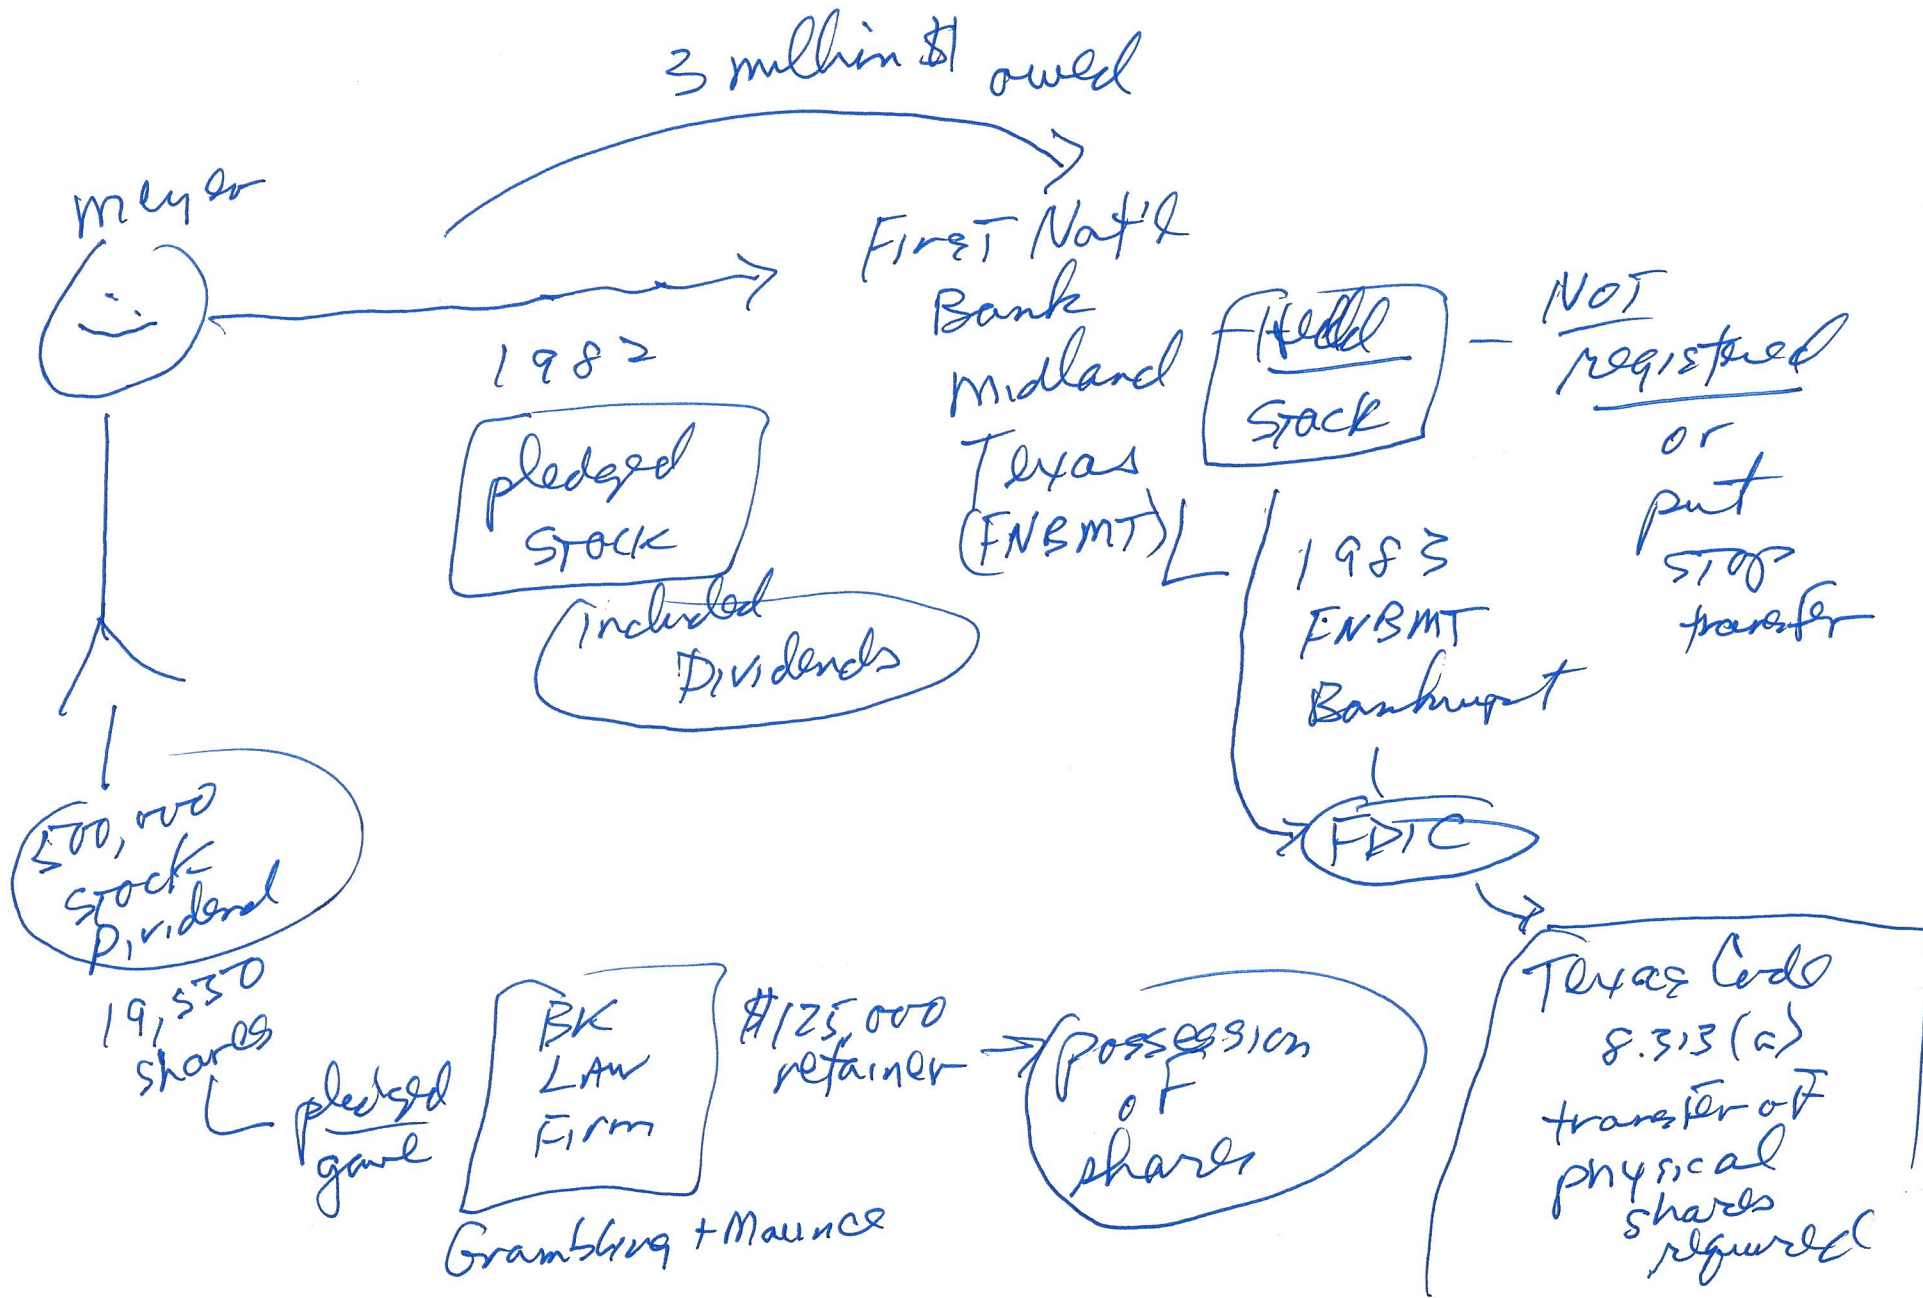 3 million $ owed
Meyer
First Nat'l
Bank
Midland
Texas
(FNBMT)
1982
pledged
stock
included
Dividends
Held
stock
NOT
registered
or
put
stop
transfer
1983
FNBMT
Bankrupt
FDIC
Texas Code
8.313(a)
transfer of
physical
shares
required
500,000
stock
Dividend
19,550
shares
pledged
gave
BK
LAW
Firm
Grambling + Mounce
$125,000
retainer
possession
of
shares